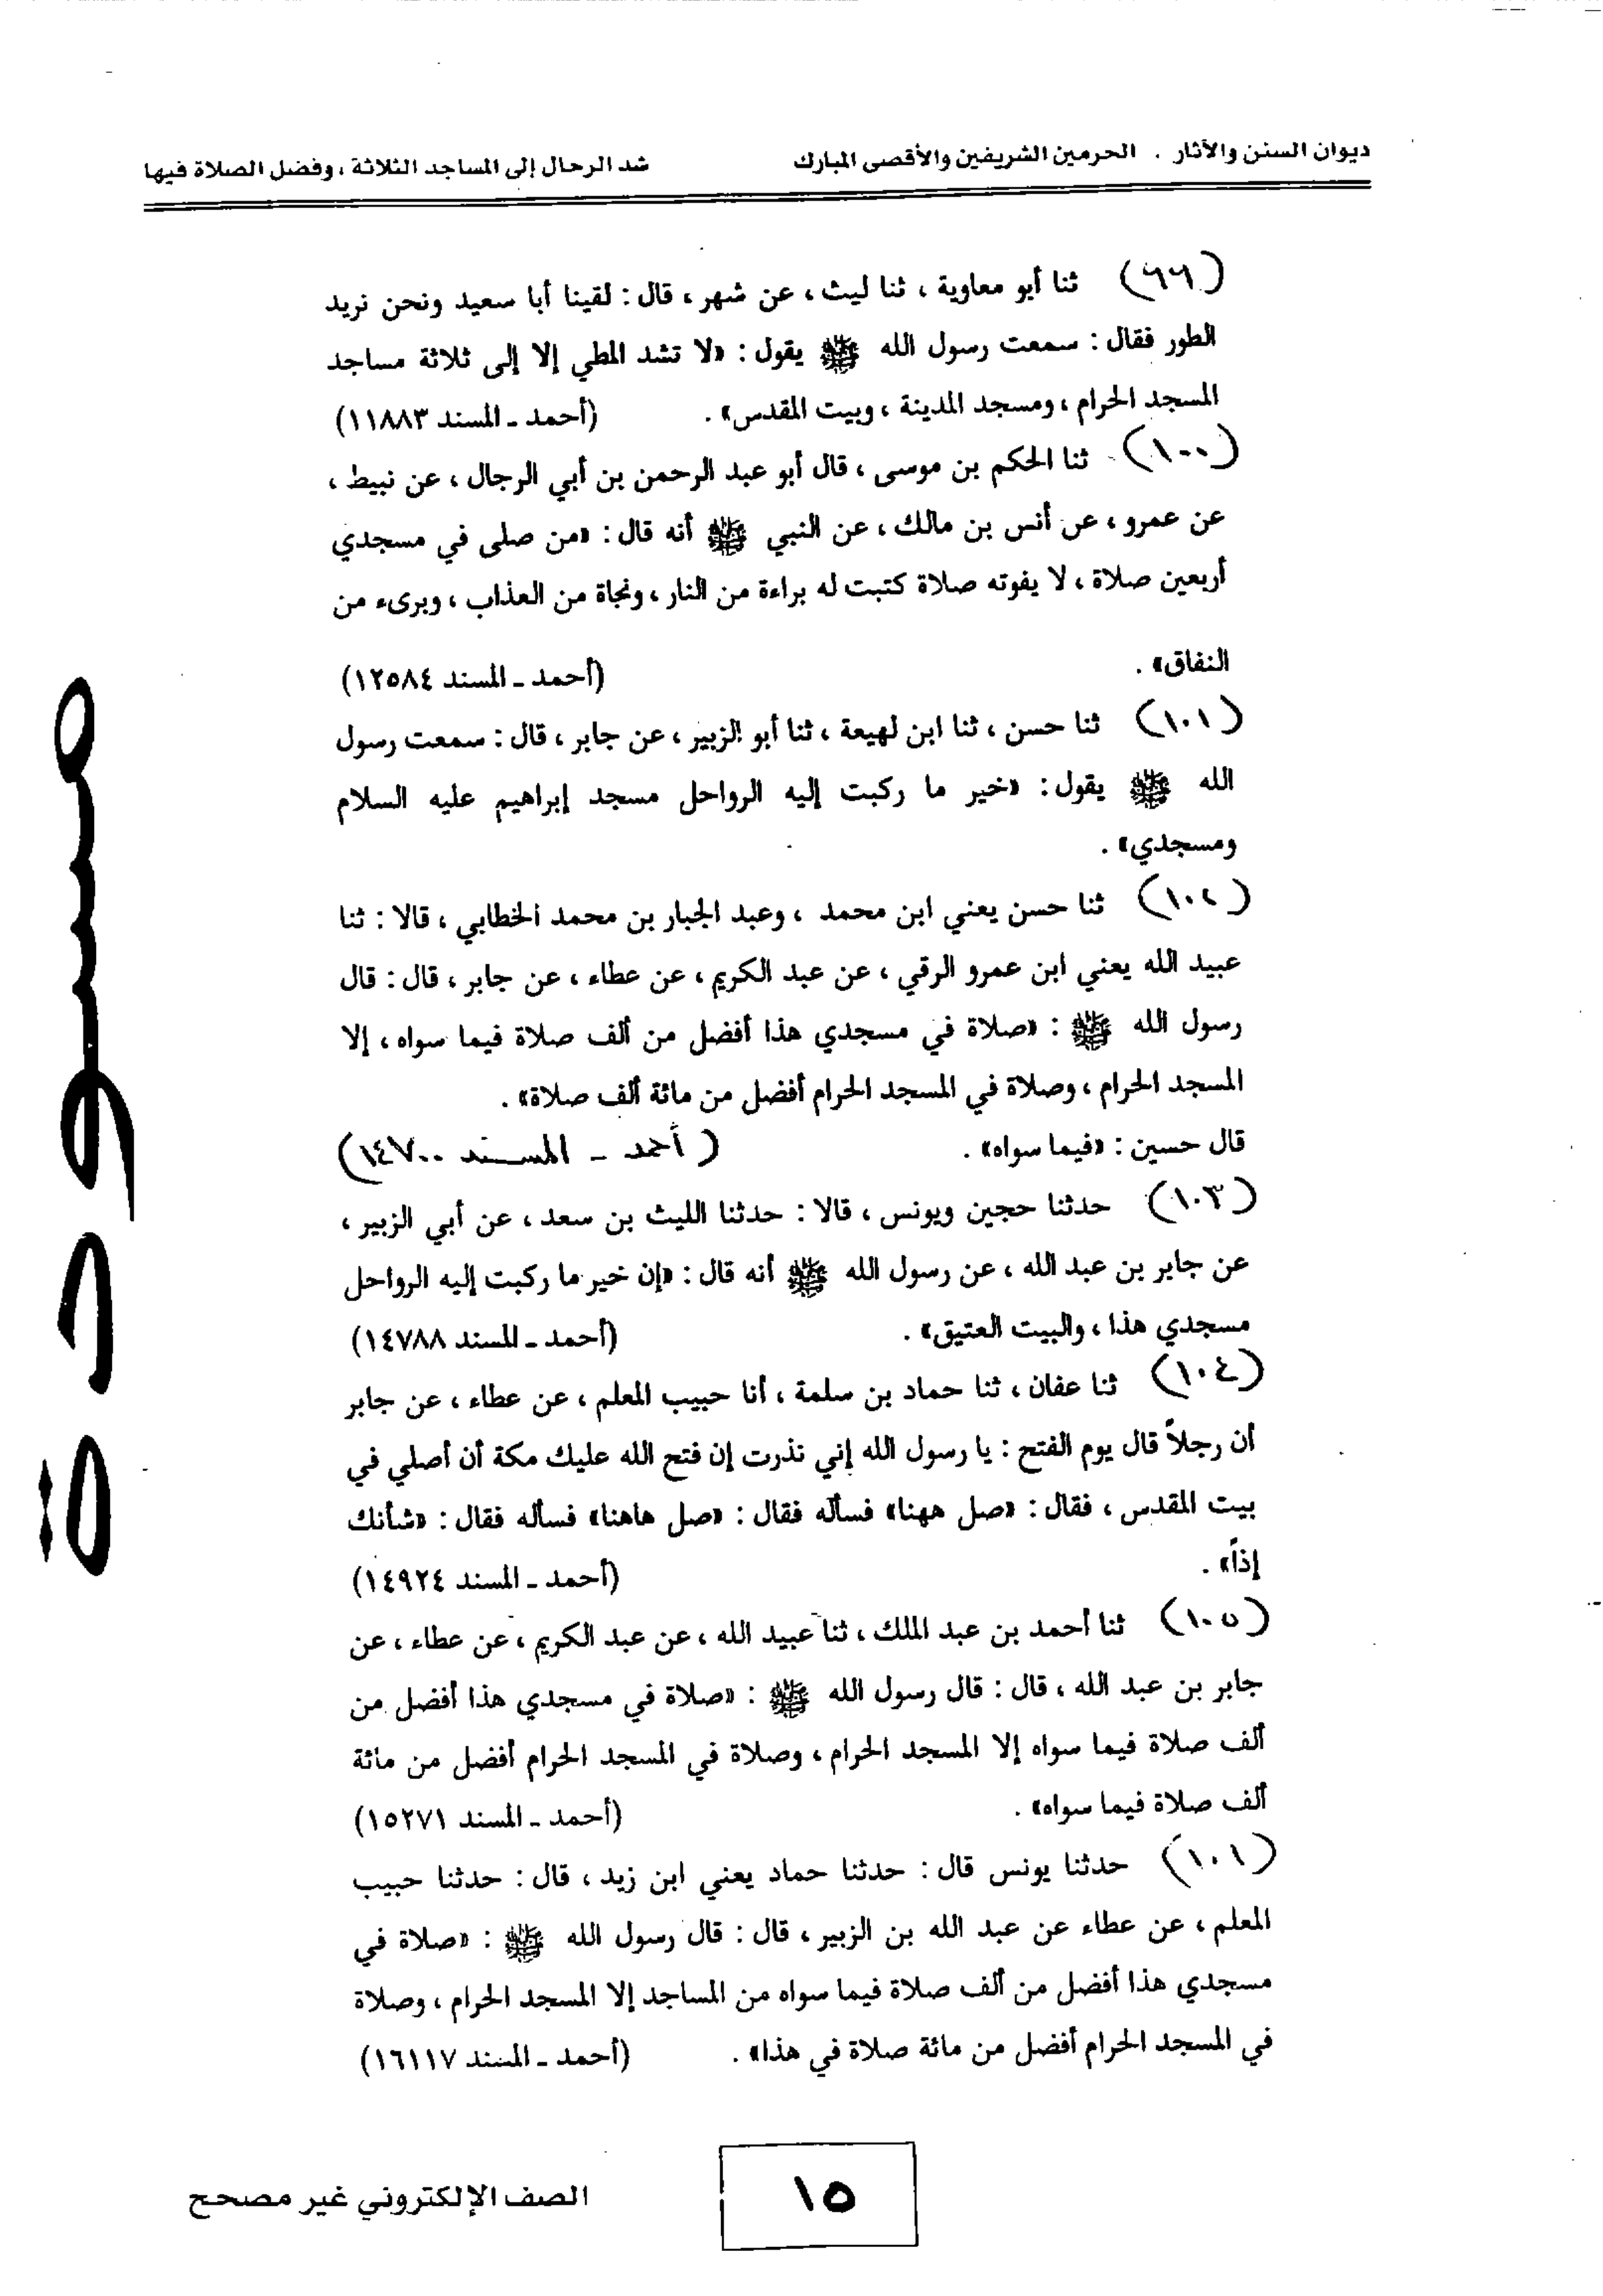 ديوان السنن والآثار . الحرمين الشريفين والأقصى المبارك
شد الرحال إلى المساجد الثلاثة ، وفضل الصلاة فيها
(٩٩) ثنا أبو معاوية ، ثنا ليث ، عن شهر ، قال : لقينا أبا سعيد ونحن نريد
الطور فقال : سمعت رسول الله ﷺ يقول : «لا تشد المطي إلا إلى ثلاثة مساجد
المسجد الحرام ، ومسجد المدينة ، وبيت المقدس» . (أحمد ـ المسند ١١٨٨٣)
(١٠٠) ثنا الحكم بن موسى ، قال أبو عبد الرحمن بن أبي الرجال ، عن نبيط ،
عن عمرو ، عن أنس بن مالك ، عن النبي ﷺ أنه قال : «من صلى في مسجدي
أربعين صلاة ، لا يفوته صلاة كتبت له براءة من النار ، ونجاة من العذاب ، وبرىء من
النفاق» . (أحمد ـ المسند ١٢٥٨٤)
(١٠١) ثنا حسن ، ثنا ابن لهيعة ، ثنا أبو الزبير ، عن جابر ، قال : سمعت رسول
الله ﷺ يقول : «خير ما ركبت إليه الرواحل مسجد إبراهيم عليه السلام
ومسجدي» .
(١٠٢) ثنا حسن يعني ابن محمد ، وعبد الجبار بن محمد الخطابي ، قالا : ثنا
عبيد الله يعني ابن عمرو الرقي ، عن عبد الكريم ، عن عطاء ، عن جابر ، قال : قال
رسول الله ﷺ : «صلاة في مسجدي هذا أفضل من ألف صلاة فيما سواه ، إلا
المسجد الحرام ، وصلاة في المسجد الحرام أفضل من مائة ألف صلاة» .
قال حسين : «فيما سواه» . (أحمد ـ المسند ١٤٧٠٠)
(١٠٣) حدثنا حجين ويونس ، قالا : حدثنا الليث بن سعد ، عن أبي الزبير ،
عن جابر بن عبد الله ، عن رسول الله ﷺ أنه قال : «إن خير ما ركبت إليه الرواحل
مسجدي هذا ، والبيت العتيق» . (أحمد ـ المسند ١٤٧٨٨)
(١٠٤) ثنا عفان ، ثنا حماد بن سلمة ، أنا حبيب المعلم ، عن عطاء ، عن جابر
أن رجلاً قال يوم الفتح : يا رسول الله إني نذرت إن فتح الله عليك مكة أن أصلي في
بيت المقدس ، فقال : «صل ههنا» فسأله فقال : «صل هاهنا» فسأله فقال : «شأنك
إذاً» . (أحمد ـ المسند ١٤٩٢٤)
(١٠٥) ثنا أحمد بن عبد الملك ، ثنا عبيد الله ، عن عبد الكريم ، عن عطاء ، عن
جابر بن عبد الله ، قال : قال رسول الله ﷺ : «صلاة في مسجدي هذا أفضل من
ألف صلاة فيما سواه إلا المسجد الحرام ، وصلاة في المسجد الحرام أفضل من مائة
ألف صلاة فيما سواه» . (أحمد ـ المسند ١٥٢٧١)
(١٠٦) حدثنا يونس قال : حدثنا حماد يعني ابن زيد ، قال : حدثنا حبيب
المعلم ، عن عطاء عن عبد الله بن الزبير ، قال : قال رسول الله ﷺ : «صلاة في
مسجدي هذا أفضل من ألف صلاة فيما سواه من المساجد إلا المسجد الحرام ، وصلاة
في المسجد الحرام أفضل من مائة صلاة في هذا» . (أحمد ـ المسند ١٦١١٧)
مسودة
١٥
الصف الإلكتروني غير مصحح